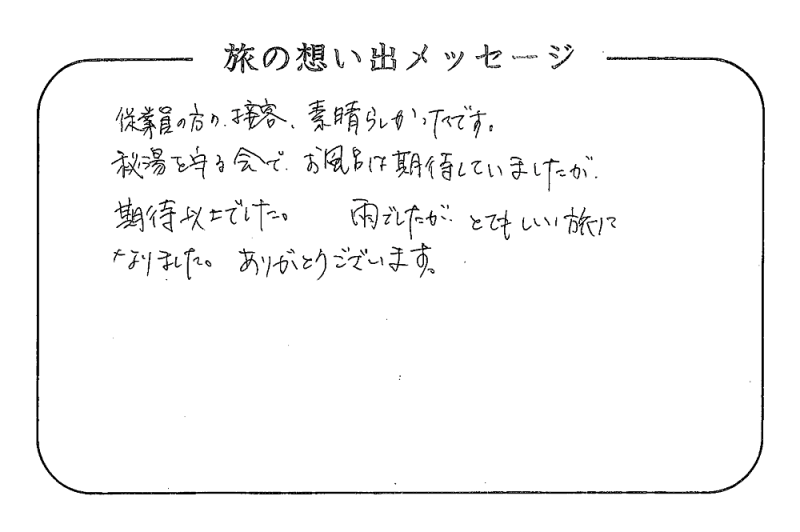 旅の想い出メッセージ
従業員の方の接客、素晴らしかったです。
秘湯を守る会で、お風呂は期待していましたが、
期待以上でした。 雨でしたが とてもいい旅に
なりました。 ありがとうございます。